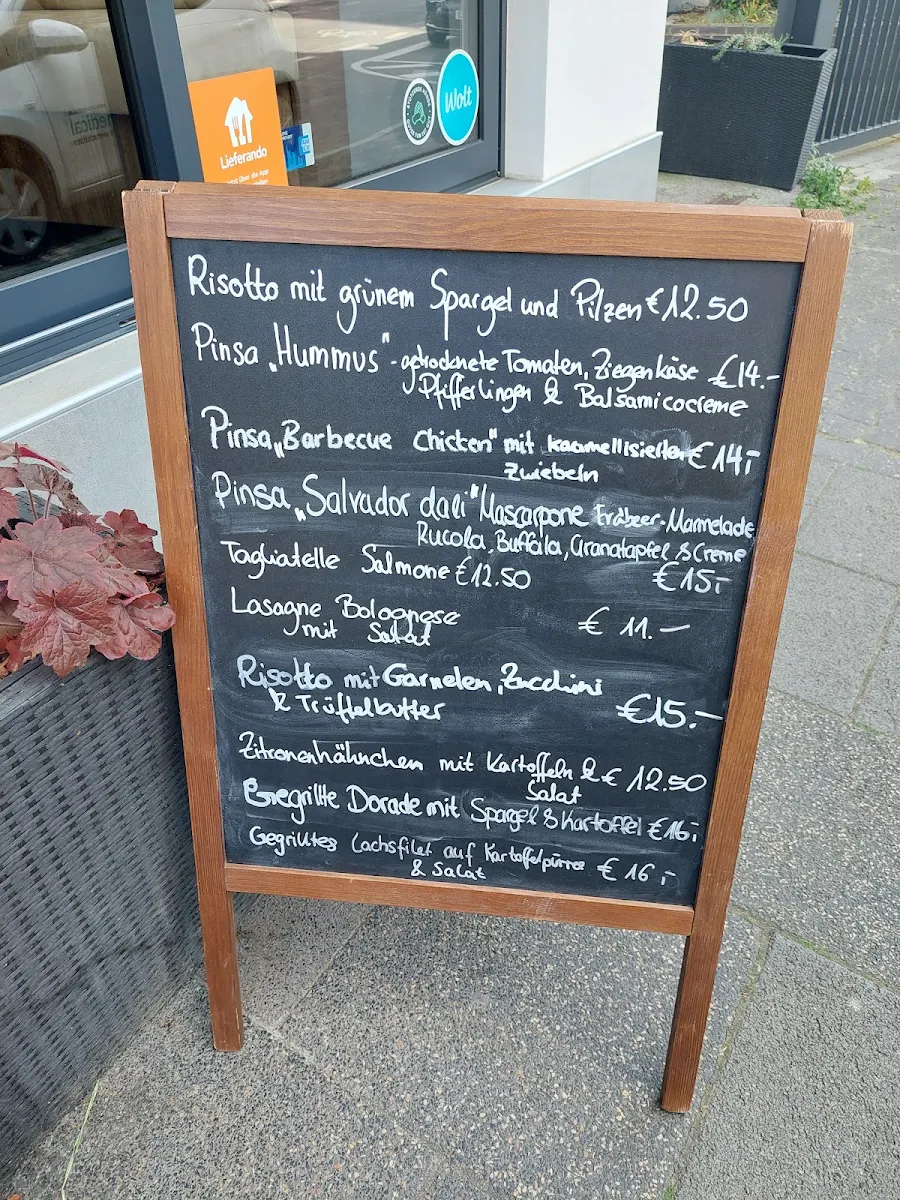 Lieferando
Wolt
Risotto mit grünem Spargel und Pilzen €12.50
Pinsa „Hummus" - getrocknete Tomaten, Ziegenkäse €14.-
Pfifferlingen & Balsamicocreme
Pinsa „Barbecue Chicken" mit karamellisierten €14,-
Zwiebeln
Pinsa „Salvador dali" Mascarpone Erdbeer-Marmelade,
Rucola, Buffala, Granatapfel & Creme
€15,-
Tagliatelle Salmone €12.50
Lasagne Bolognese
mit Salat
€ 11.-
Risotto mit Garnelen, Zucchini
& Trüffelbutter
€15.-
Zitronenhähnchen mit Kartoffeln & € 12.50
Salat
Gegrillte Dorade mit Spargel & Kartoffel €16,-
Gegrilltes Lachsfilet auf Kartoffelpürree € 16,-
& Salat